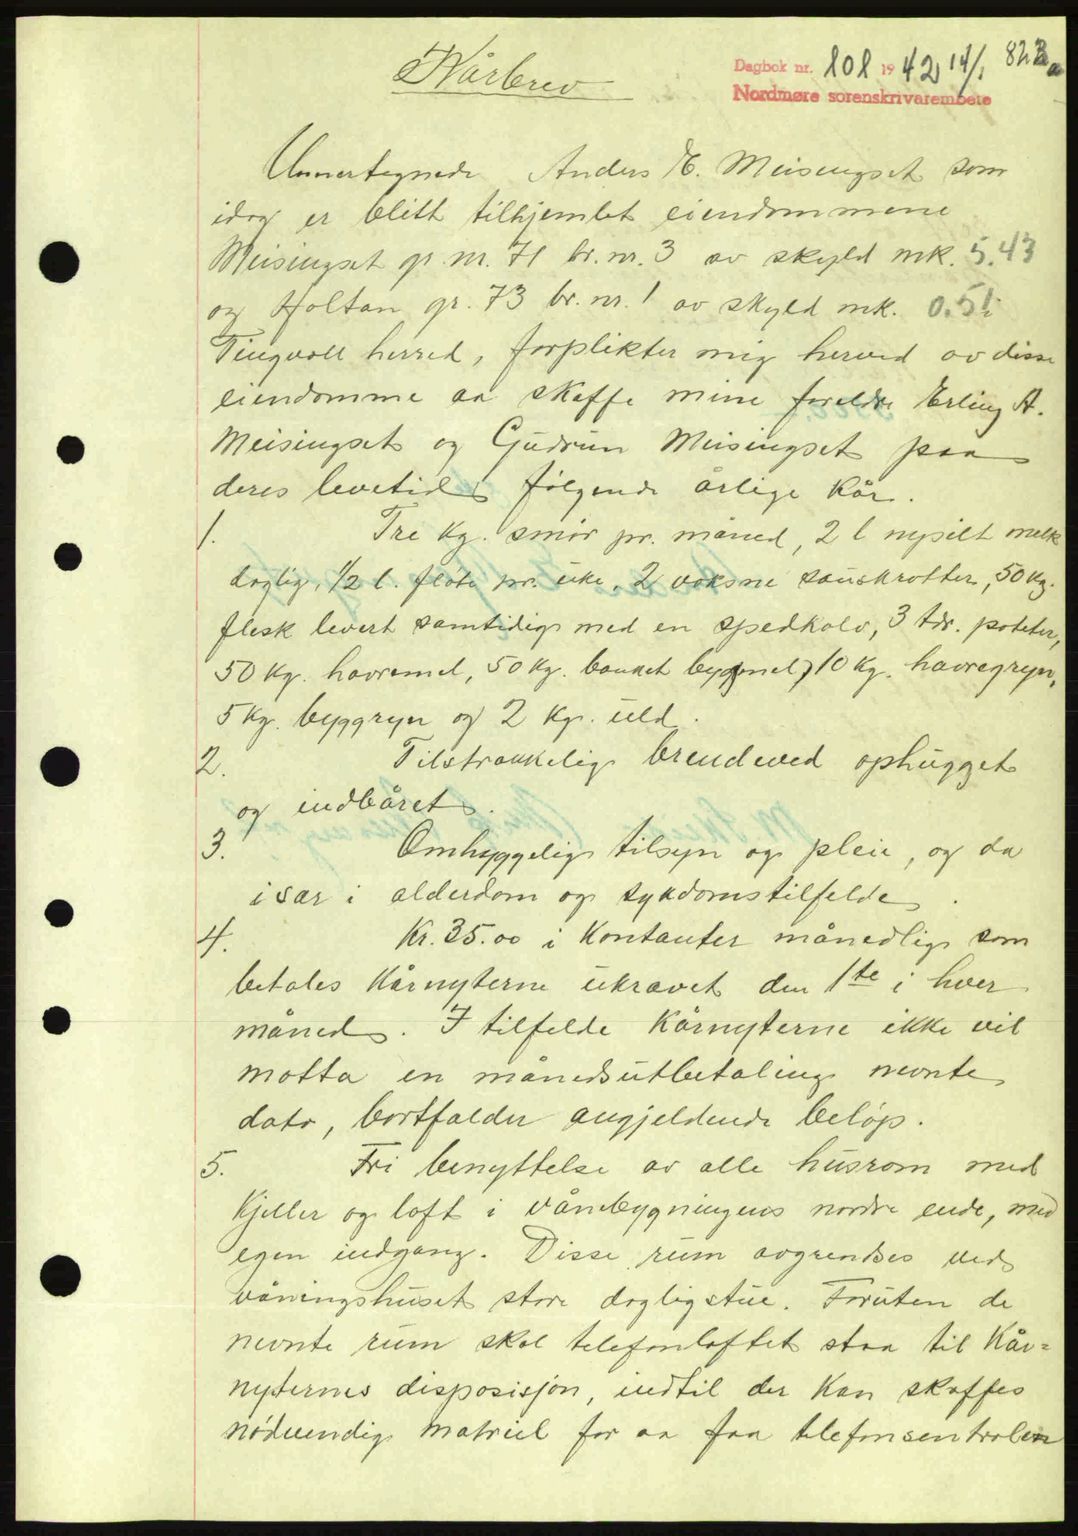 Kårbrev
Dagbok nr. 808 1942 14/1 822a
Nordmøre sorenskrivarembete
Unnertegnede Anders E. Meisingset som
idag er blitt tilhjemlet eiendommene
Meisingset gr. nr. 71 br. nr. 3 av skyld mk. 5.43
og Holtan gr. 73 br. nr. 1 av skyld mk. 0.51 i
Tingvoll herred, forplikter mig herved av disse
eiendomme aa skaffe mine foreldre Erling A.
Meisingset og Gudrun Meisingset paa
deres levetid følgende årlige kår.
1. Tre kg. smør pr. måned, 2 l nysilt melk
daglig, 1/2 l. fløte pr. uke, 2 voksne sauskrotter, 50 kg.
flesk levert samtidig med en spedkalv, 3 tdr. poteter,
50 kg. havremel, 50 kg. banket bygmel, 10 kg. havregryn,
5 kg. byggryn og 2 kg. uld.
2. Tilstrækkelig brendeved ophugget
og indbåret.
3. Omhyggelig tilsyn og pleie, og da
især i alderdom og sykdomstilfelde.
4. Kr. 35.00 i kontanter månedlig som
betales kårnyterne ukrævet den 1te i hver
måned. I tilfelde kårnyterne ikke vil
motta en månedsutbetaling nevnte
dato, bortfalder angjeldende beløp.
5. Fri benyttelse av alle husrom med
kjeller og loft i vånebygningens nordre ende, med
egen indgang. Disse rum avgrendses ved
våningshuset store dagligstue. Foruten de
nevnte rum skal telefonloftet staa til kår-
nyternes disposisjon, indtil der kan skaffes
nødvendig matriel for aa faa telefonsentralen